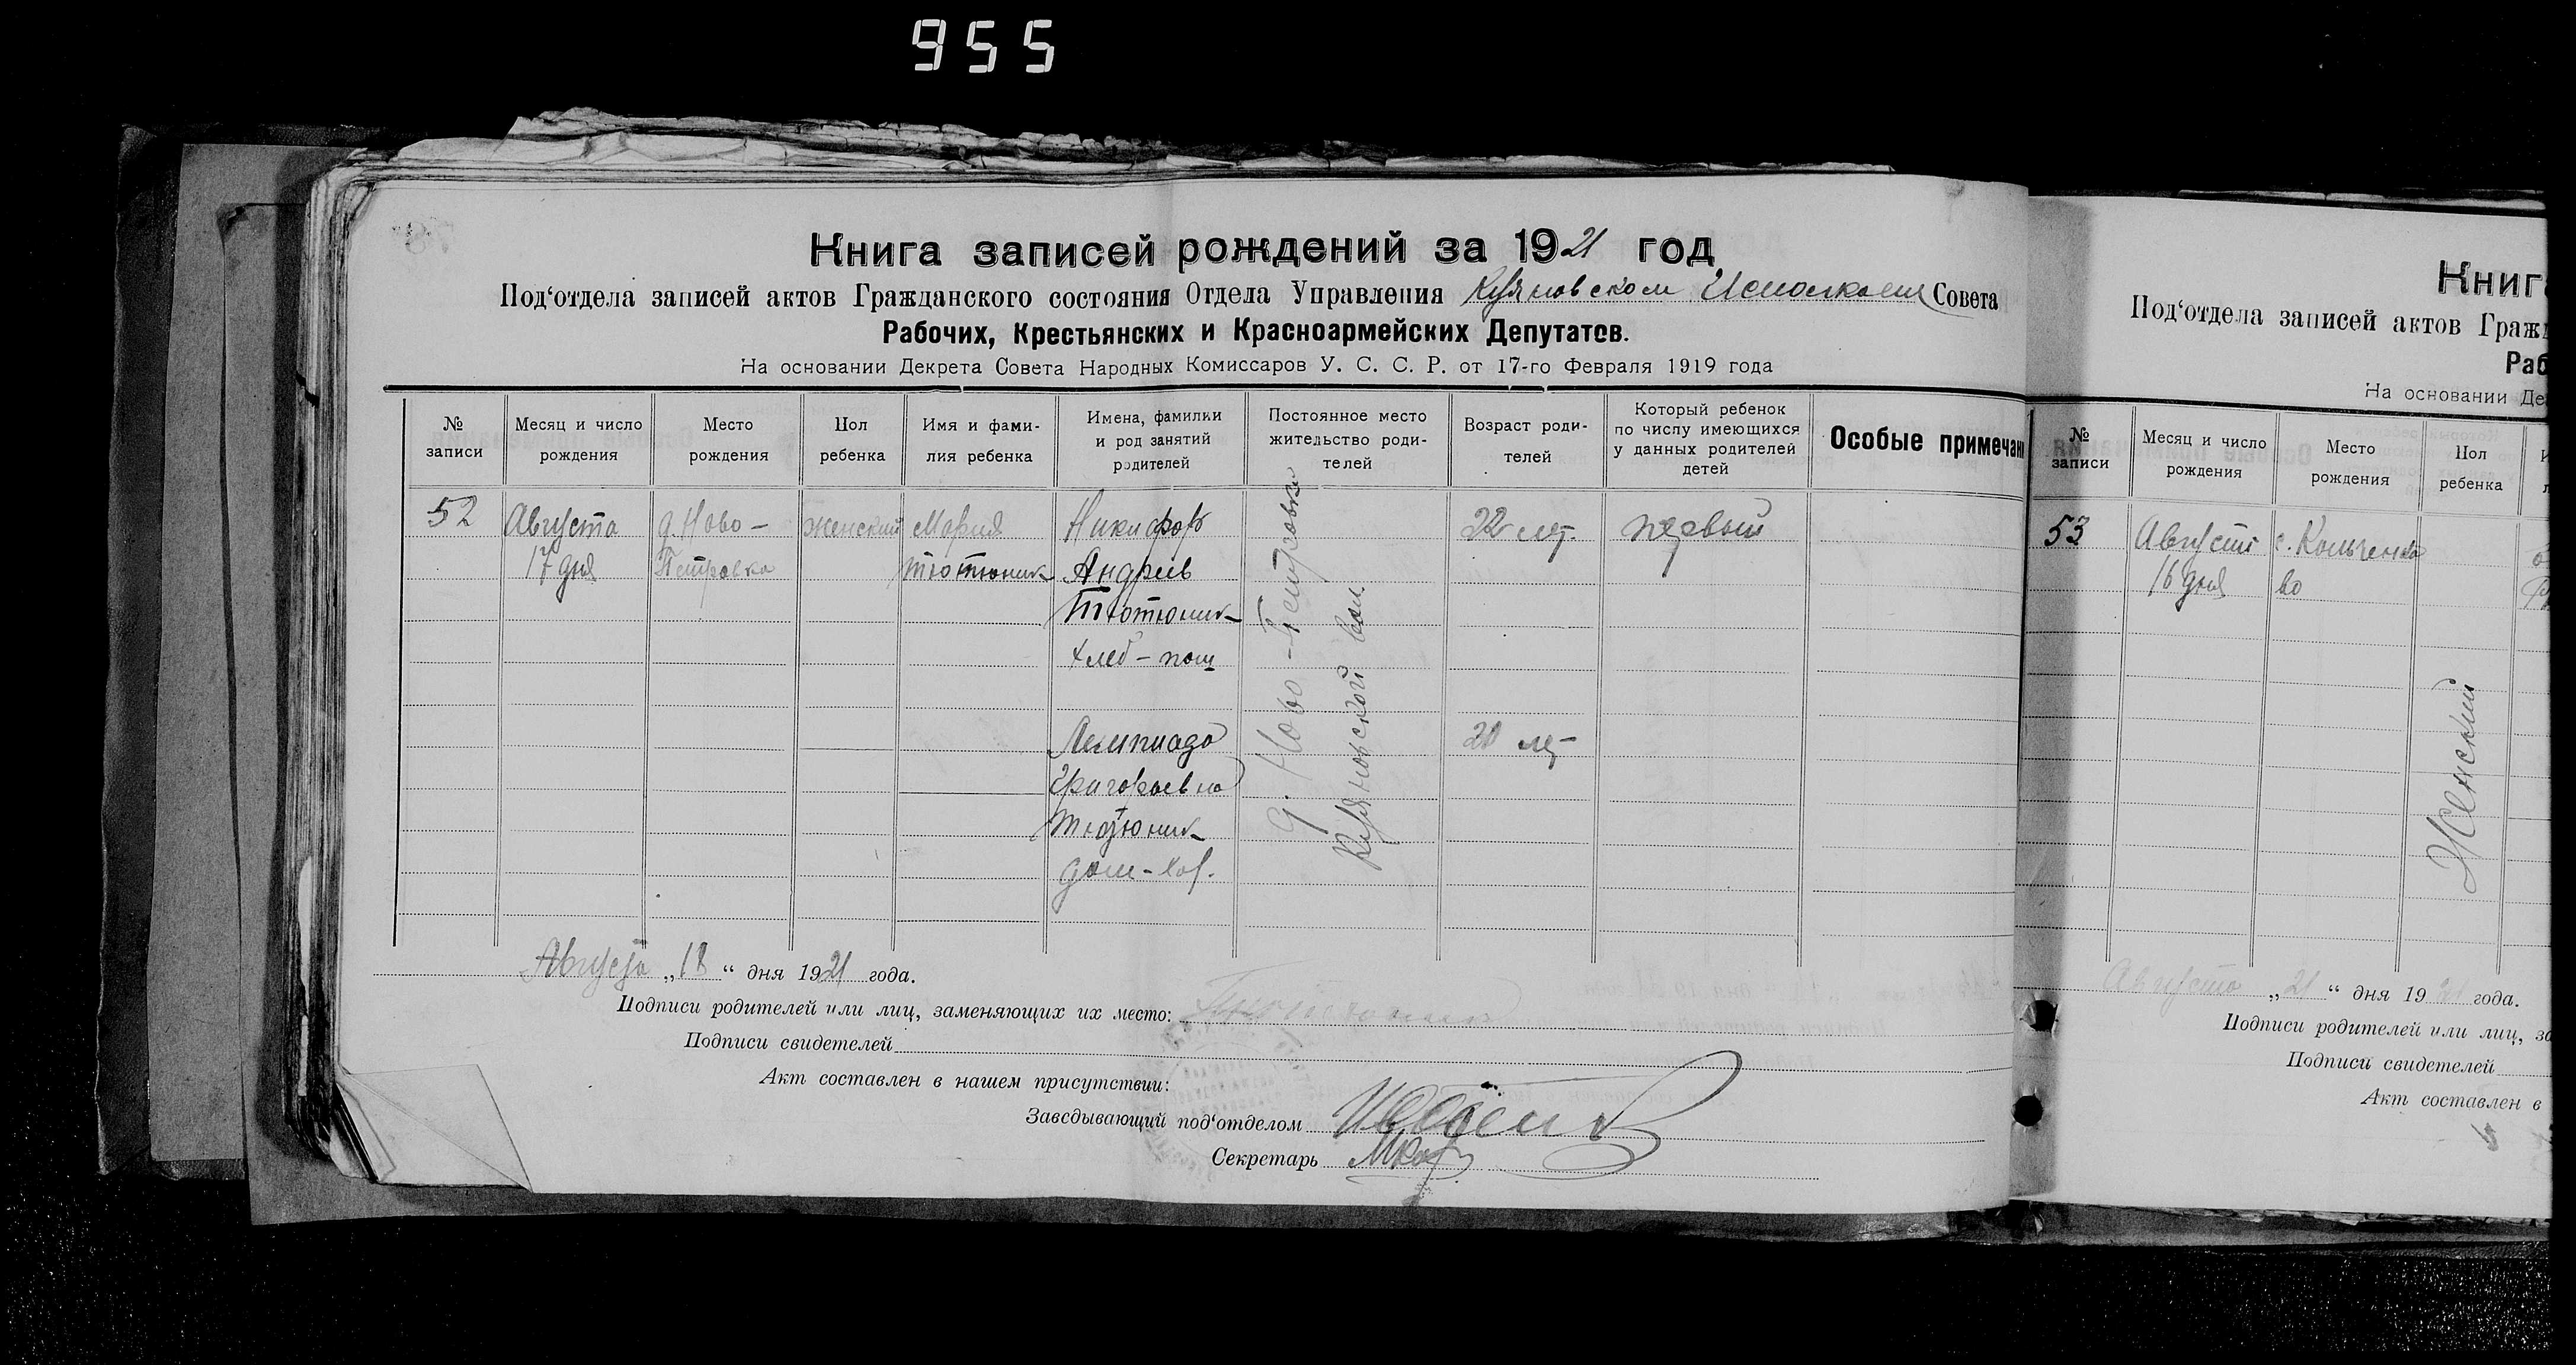 955
Книга записей рождений за 1921 год
Под‘отдела записей актов Гражданского состояния Отдела Управления Куяновском Исполкоме Совета
Рабочих, Крестьянских и Красноармейских Депутатов.
На основании Декрета Совета Народных Комиссаров У. С. С. Р. от 17-го Февраля 1919 года
№ записи
Месяц и число рождения
Место рождения
Пол ребенка
Имя и фами-
лия ребенка
Имена, фамилии
и род занятий
родителей
Постоянное место
жительство роди-
телей
Возраст роди-
телей
Который ребенок
по числу имеющихся
у данных родителей
детей
Особые примечан
52
Августа
17 дня
д. Ново-
Петровка
женский
Мария
Тютюник
Никифор
Андреев
Тютюник
хлеб-паш
Лемпиада
Григорьевна
Тютюник
дом-хоз.
д. Ново-Петровки
Куяновской вол.
22 лет
20 лет
первый
Августа „18“ дня 1921 года.
Подписи родителей или лиц, заменяющих их место:
Подписи свидетелей
Акт составлен в нашем присутствии:
Заведывающий под‘отделом
Секретарь
Книг
Под‘отдела записей актов Гражд
Раб
На основании Де
№
записи
Месяц и число
рождения
Место
рождения
Пол
ребенка
53
Августа
16 дня
с. Кольченко
во
Женский
Августа „21“ дня 1921 года.
Подписи родителей или лиц, за
Подписи свидетелей
Акт составлен в